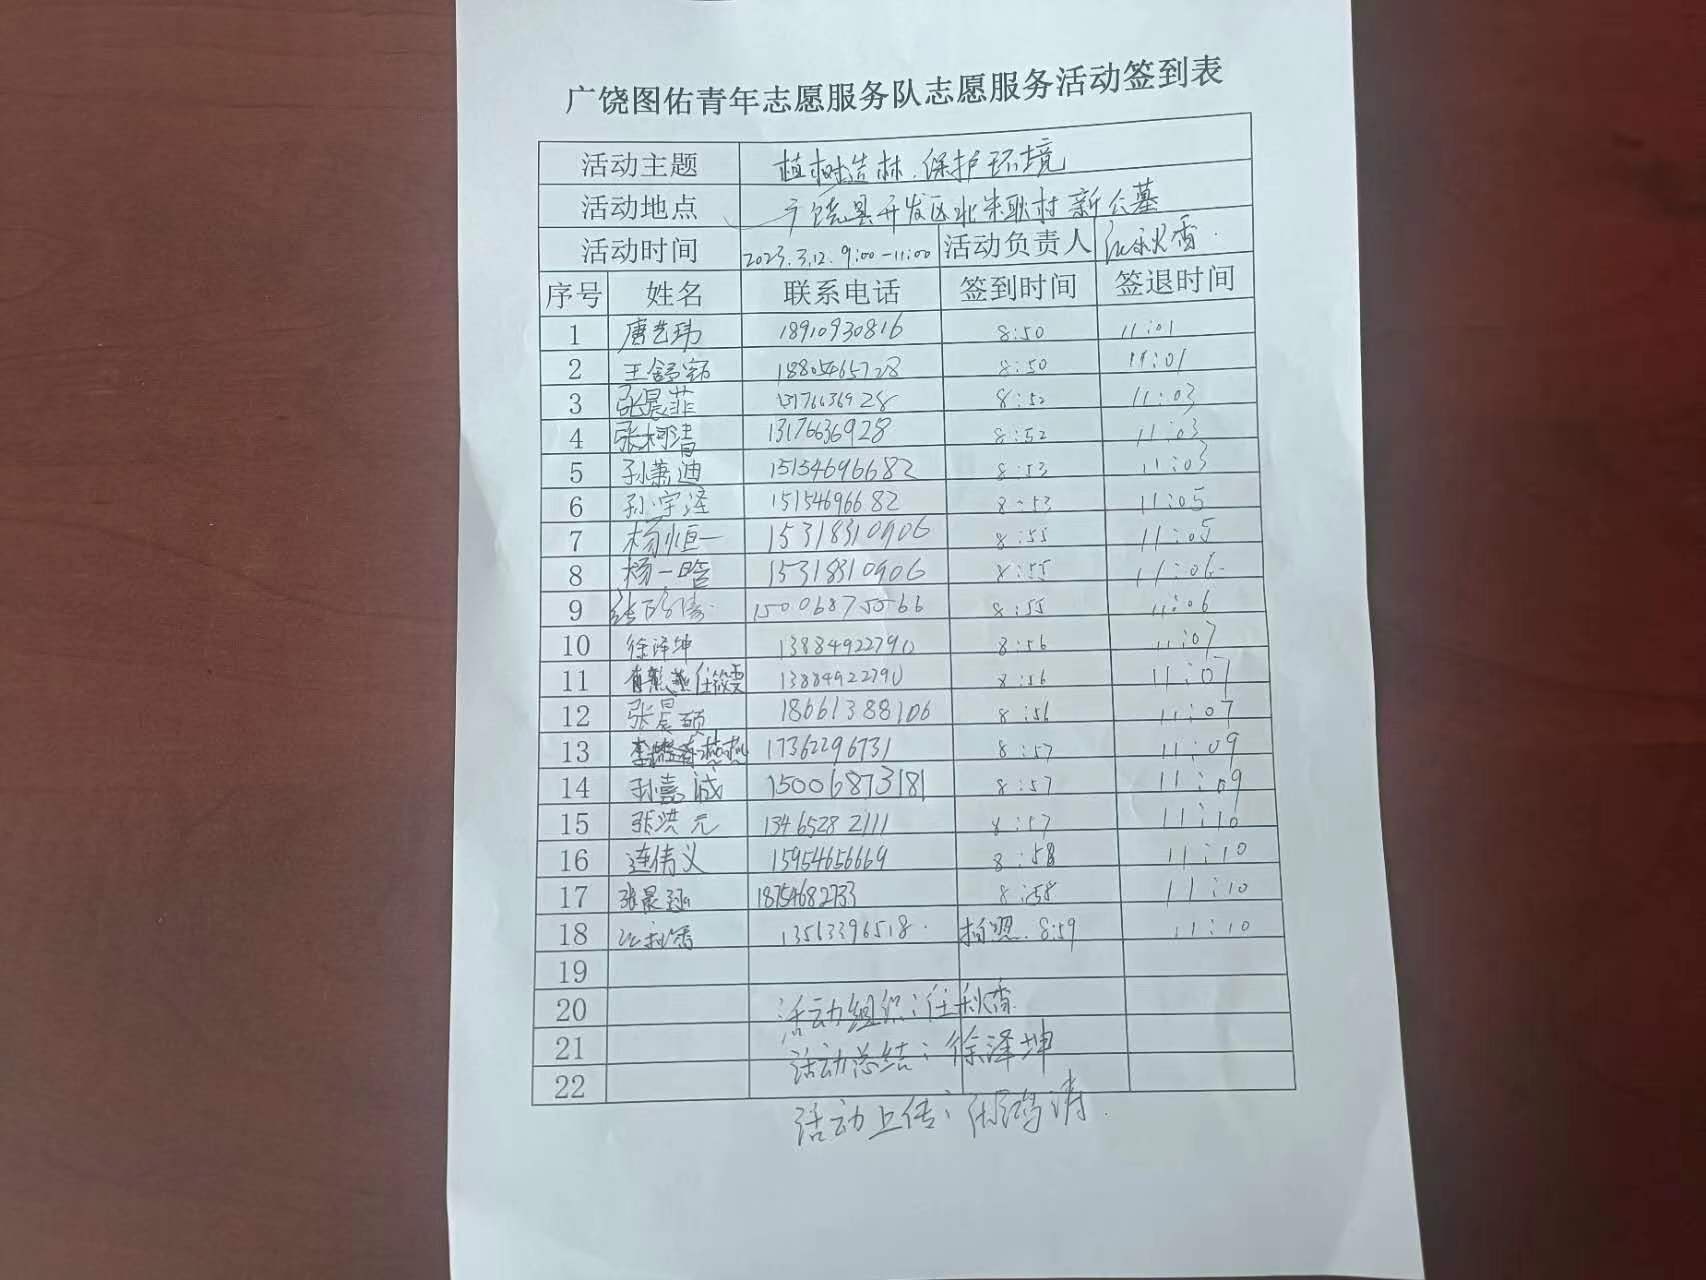 广饶图佑青年志愿服务队志愿服务活动签到表
活动主题 植树造林.保护环境
活动地点 广饶县开发区北朱耿村新公墓
活动时间 2023.3.12. 9:00-11:00 活动负责人 任秋香.
序号 姓名 联系电话 签到时间 签退时间
1 唐艺玮 18910930816 8:50 11:01
2 王舒钰 18805465728 8:50 11:01
3 张晨菲 13176636928 8:52 11:03
4 张柯清 13176636928 8:52 11:03
5 孙萧迪 15154696682 8:53 11:03
6 孙宇泽 15154696682 8:53 11:05
7 杨恒一 15318310906 8:55 11:05
8 杨一晗 15318310906 8:55 11:06
9 15006875566 8:55 11:06
10 徐泽坤 13884922790 8:56 11:07
11 任筱雯 13884922790 8:56 11:07
12 张晨硕 18661388106 8:56 11:07
13 17362296731 8:57 11:09
14 孙嘉诚 15006873181 8:57 11:09
15 张洪元 13465282111 8:57 11:10
16 连倩义 15954656669 8:58 11:10
17 张晨 18754682733 8:58 11:10
18 任秋香 13563396518. 拍照.8:59 11:10
19
20 活动组织:任秋香
21 活动总结:徐泽坤
22
活动上传: 鸿涛.